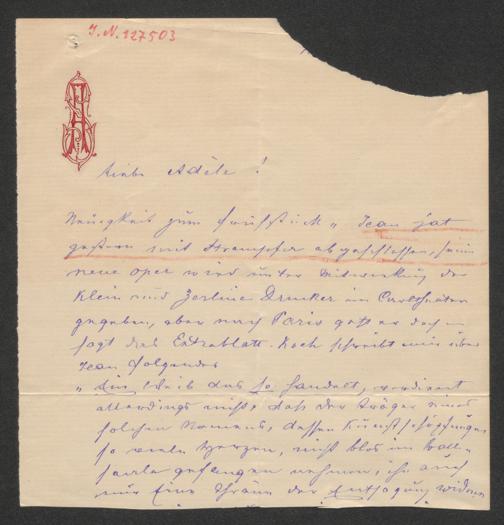 J.N. 127503
Liebe Adèle !
Neuigkeit zum Frühstück „ Jean hat
gestern mit Strampfer abgeschlossen, seine
neue Oper wird unter Mitwirkung der
Klein und Zerline Drucker im Carltheater
gegeben, aber nach Paris geht er doch
sagt das Extrablatt. Koch schreibt mir über
Jean folgendes
„ Ein Weib das so handelt, verdient
allerdings nicht, daß der Träger eines
solchen Namens, dessen Kunstschöpfungen
so viele Herzen, nicht blos im Ball-
saale gefangen nehmen, ihr auch
nur Eine Thräne der Entsagung widmen